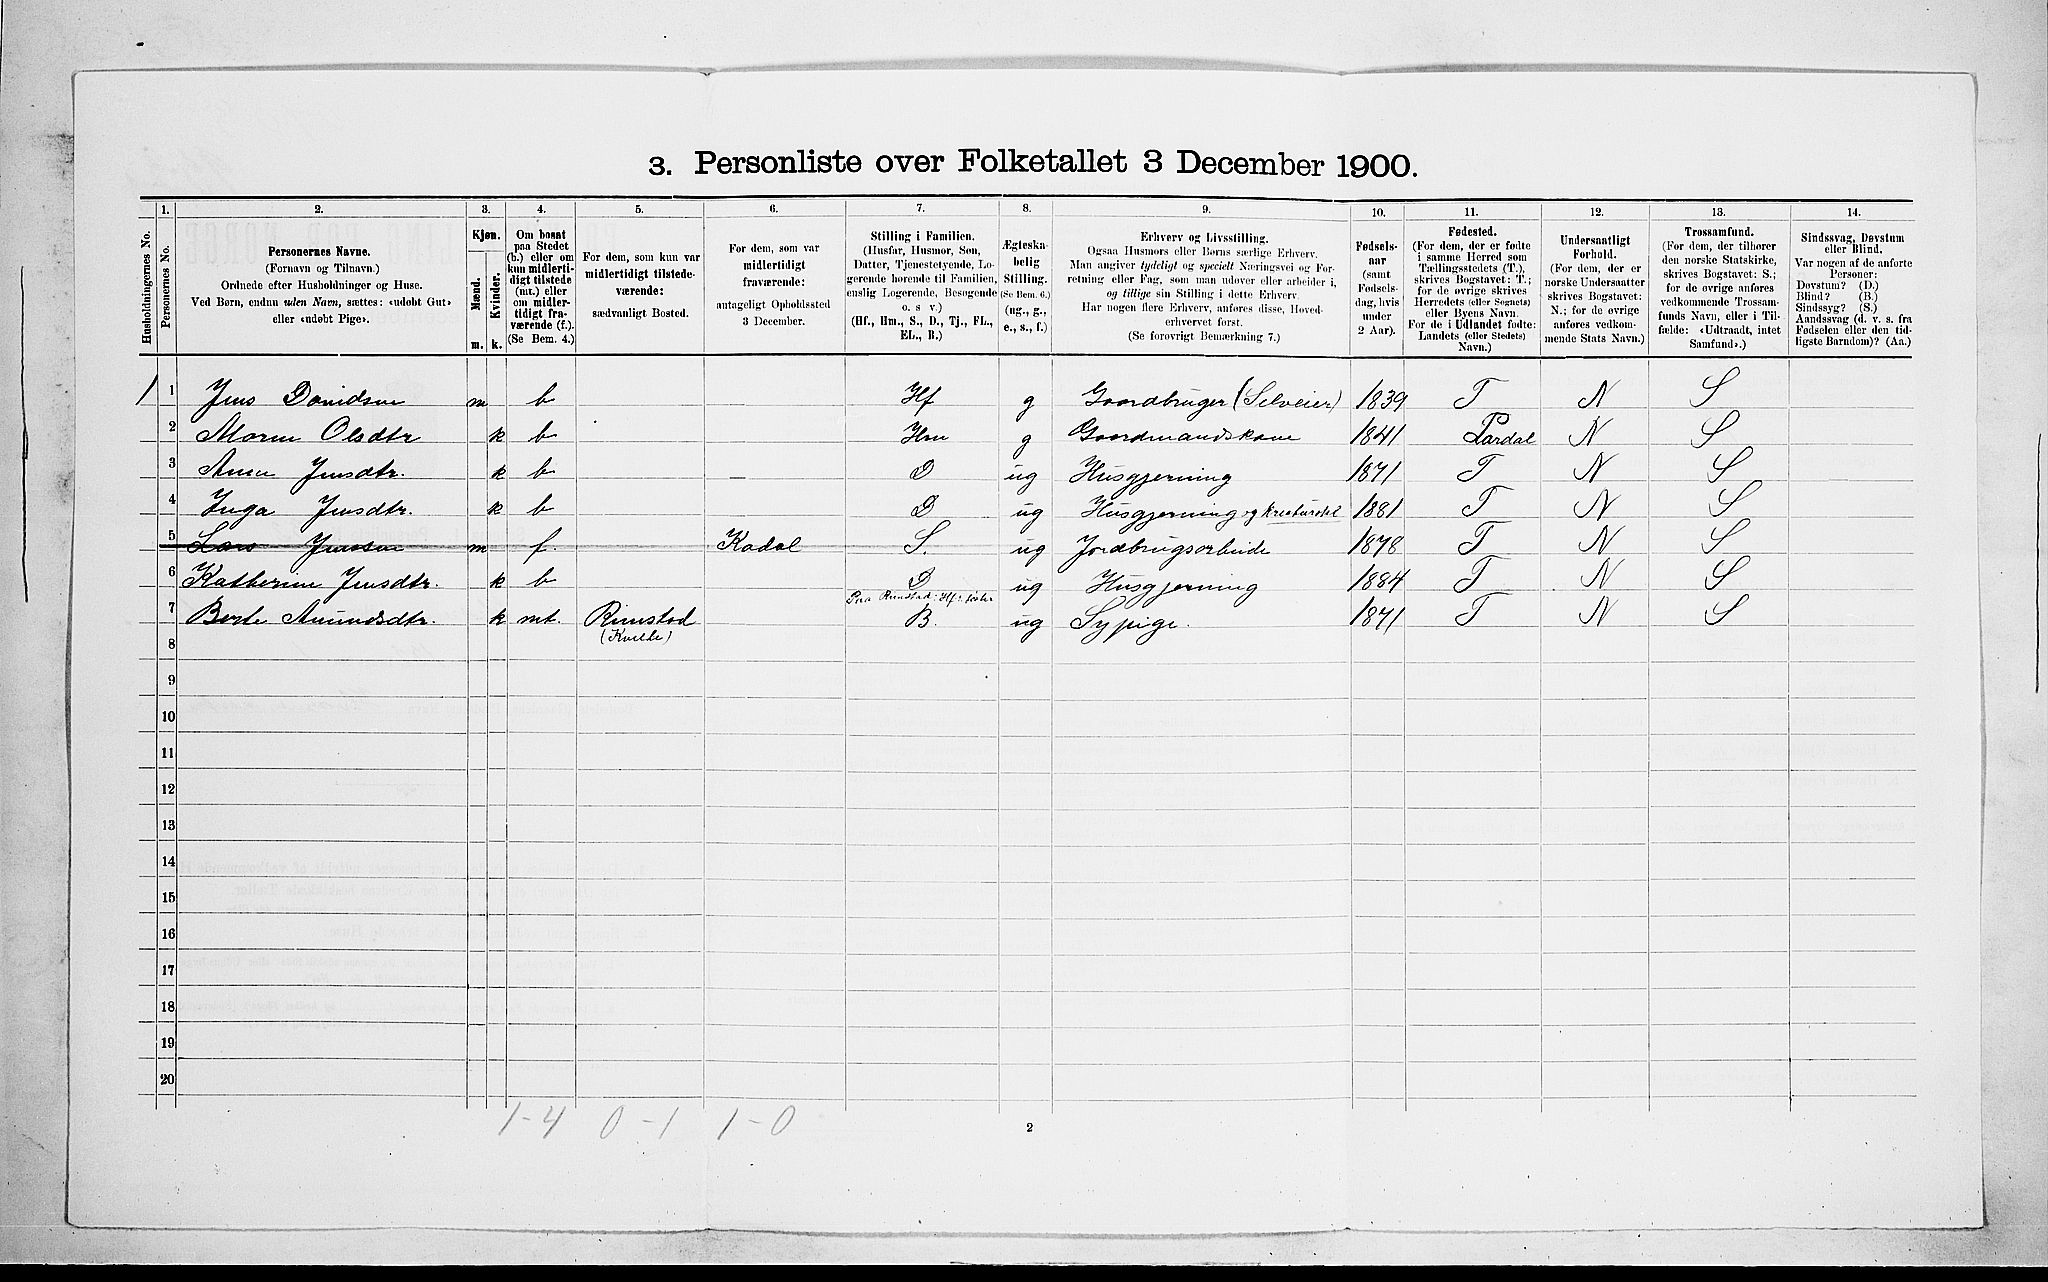 3. Personliste over Folketallet 3 December 1900.
1. 2. 3. 4. 5. 6. 7. 8. 9. 10. 11. 12. 13. 14.
Husholdningernes No.
Personernes No.
Personernes Navne.
(Fornavn og Tilnavn.)
Ordnede efter Husholdninger og Huse.
Ved Børn, endnu uden Navn, sættes: «udøbt Gut»
eller «udøbt Pige».
Kjøn.
Mænd.
Kvinder.
m. k.
Om bosat
paa Stedet
(b.) eller om
kun midlerti-
digt tilstede
(mt.) eller
om midler-
tidigt fra-
værende (f.).
(Se Bem. 4.)
For dem, som kun var
midlertidigt tilstede-
værende:
sædvanligt Bosted.
For dem, som var
midlertidigt
fraværende:
antageligt Opholdssted
3 December.
Stilling i Familien.
(Husfar, Husmor, Søn,
Datter, Tjenestetyende, Lo-
gerende hørende til Familien,
enslig Logerende, Besøgende
o. s v.)
(Hf., Hm., S., D., Tj., FL.,
EL., B.)
Ægteska-
belig
Stilling.
(Se Bem. 6.)
(ug., g.,
e., s., f.)
Erhverv og Livsstilling.
Ogsaa Husmors eller Børns særlige Erhverv.
Man angiver tydeligt og specielt Næringsvei og For-
retning eller Fag, som man udøver eller arbeider i,
og tillige sin Stilling i dette Erhverv.
Har nogen flere Erhverv, anføres disse, Hoved-
erhvervet først.
(Se forøvrigt Bemærkning 7.)
Fødsels-
aar
(samt
Fødsels-
dag, hvis
under
2 Aar).
Fødested.
(For dem, der er fødte
i samme Herred som
Tællingsstedets (T.),
skrives Bogstavet: T.;
for de øvrige skrives
Herredets (eller Sognets)
eller Byens Navn.
For de i Udlandet fødte:
Landets (eller Stedets)
Navn.)
Undersaatligt
Forhold.
(For dem, der er
norske Undersaatter
skrives Bogstavet:
N.; for de øvrige
anføres vedkom-
mende Stats Navn.)
Trossamfund.
(For dem, der tilhører
den norske Statskirke,
skrives Bogstavet: S.;
for de øvrige anføres
vedkommende Trossam-
funds Navn, eller i Til-
fælde: «Udtraadt, intet
Samfund».)
Sindssvag, Døvstum
eller Blind.
Var nogen af de anførte
Personer:
Døvstum? (D.)
Blind? (B.)
Sindssyg? (S.)
Aandssvag (d. v. s. fra
Fødselen eller den tid-
ligste Barndom)? (Aa.)
1 1 Jens Davidsen m b Hf g Gaardbruger (Selveier) 1839 T N S
2 Maren Olsdtr k b Hm g Gaardmandskone 1841 Lardal N S
3 Anna Jensdtr. k b D ug Husgjerning 1871 T N S
4 Inga Jensdtr. k b D ug Husgjerning og kreaturstel 1881 T N S
5 Lars Jensen m f. Kodal S. ug Jordbrugsarbeide 1878 T N S
6 Katherine Jensdtr. k b D ug Husgjerning 1884 T N S
Paa Rimstad: Hf's søster
7 Berte Amundsdtr. k mt. Rimstad B. ug Sypige. 1871 T N S
(Kvelle)
8
9
10
11
12
13
14
15
16
17
18
19
20
1-4 0-1 1-0
2